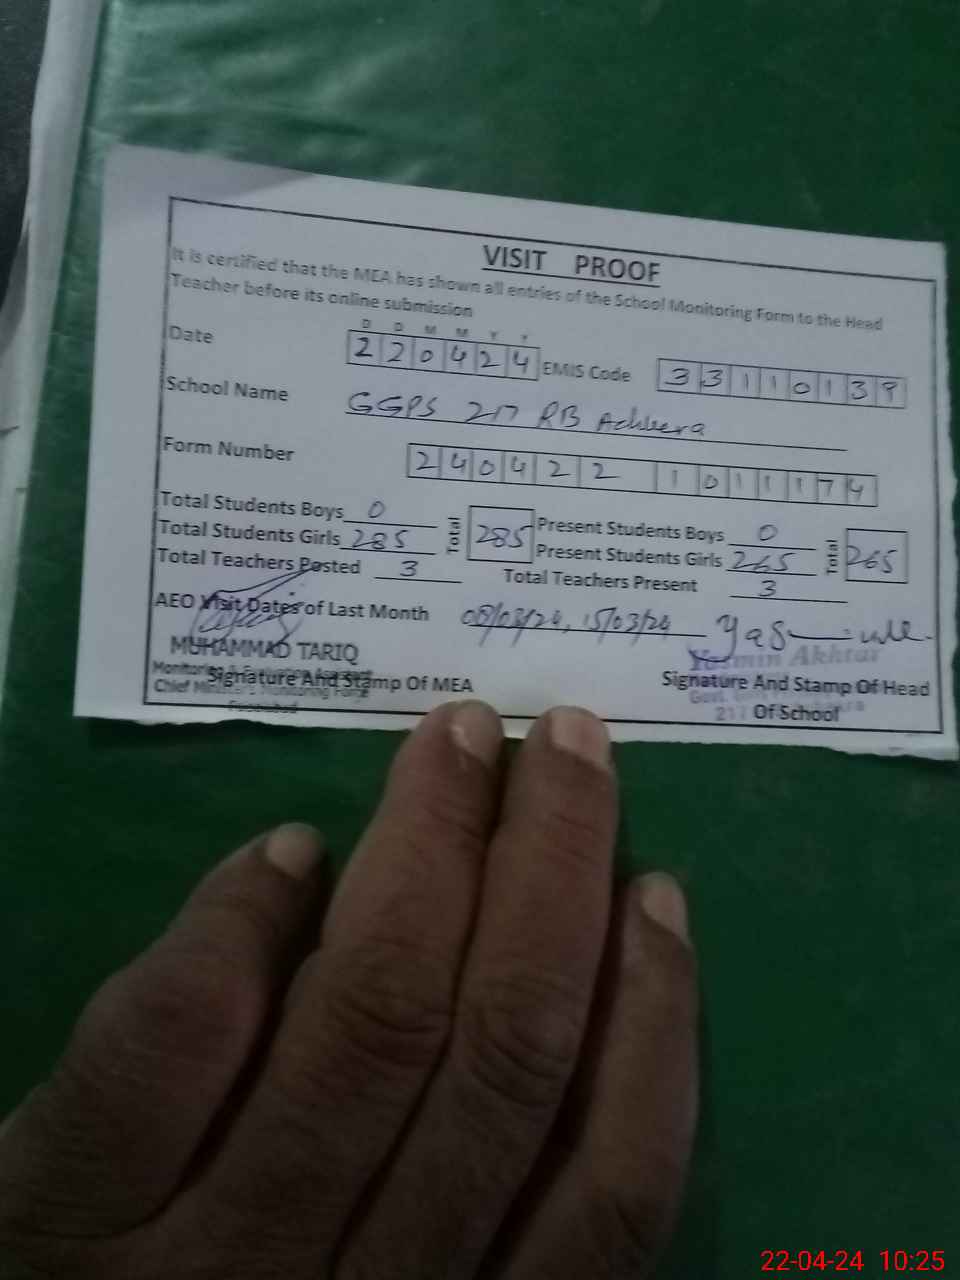 VISIT PROOF
It is certified that the MEA has shown all entries of the School Monitoring Form to the Head
Teacher before its online submission
D D M M Y Y
Date 2 2 0 4 2 4 EMIS Code 3 3 1 1 0 1 3 9
School Name GGPS 217 RB
Form Number 2 4 0 4 2 2 1 0 1 1 1 7 4
Total Students Boys 0 Total 285 Present Students Boys 0 Total 265
Total Students Girls 285 Present Students Girls 265
Total Teachers Posted 3 Total Teachers Present 3
AEO Visit Dates of Last Month 08/03/24, 15/03/24
MUHAMMAD TARIQ Yasmin Akhtar
Monitoring & Evaluation
Signature And Stamp Of MEA Signature And Stamp Of Head
Chief Minister's Monitoring Force Govt.
Of School
22-04-24 10:25